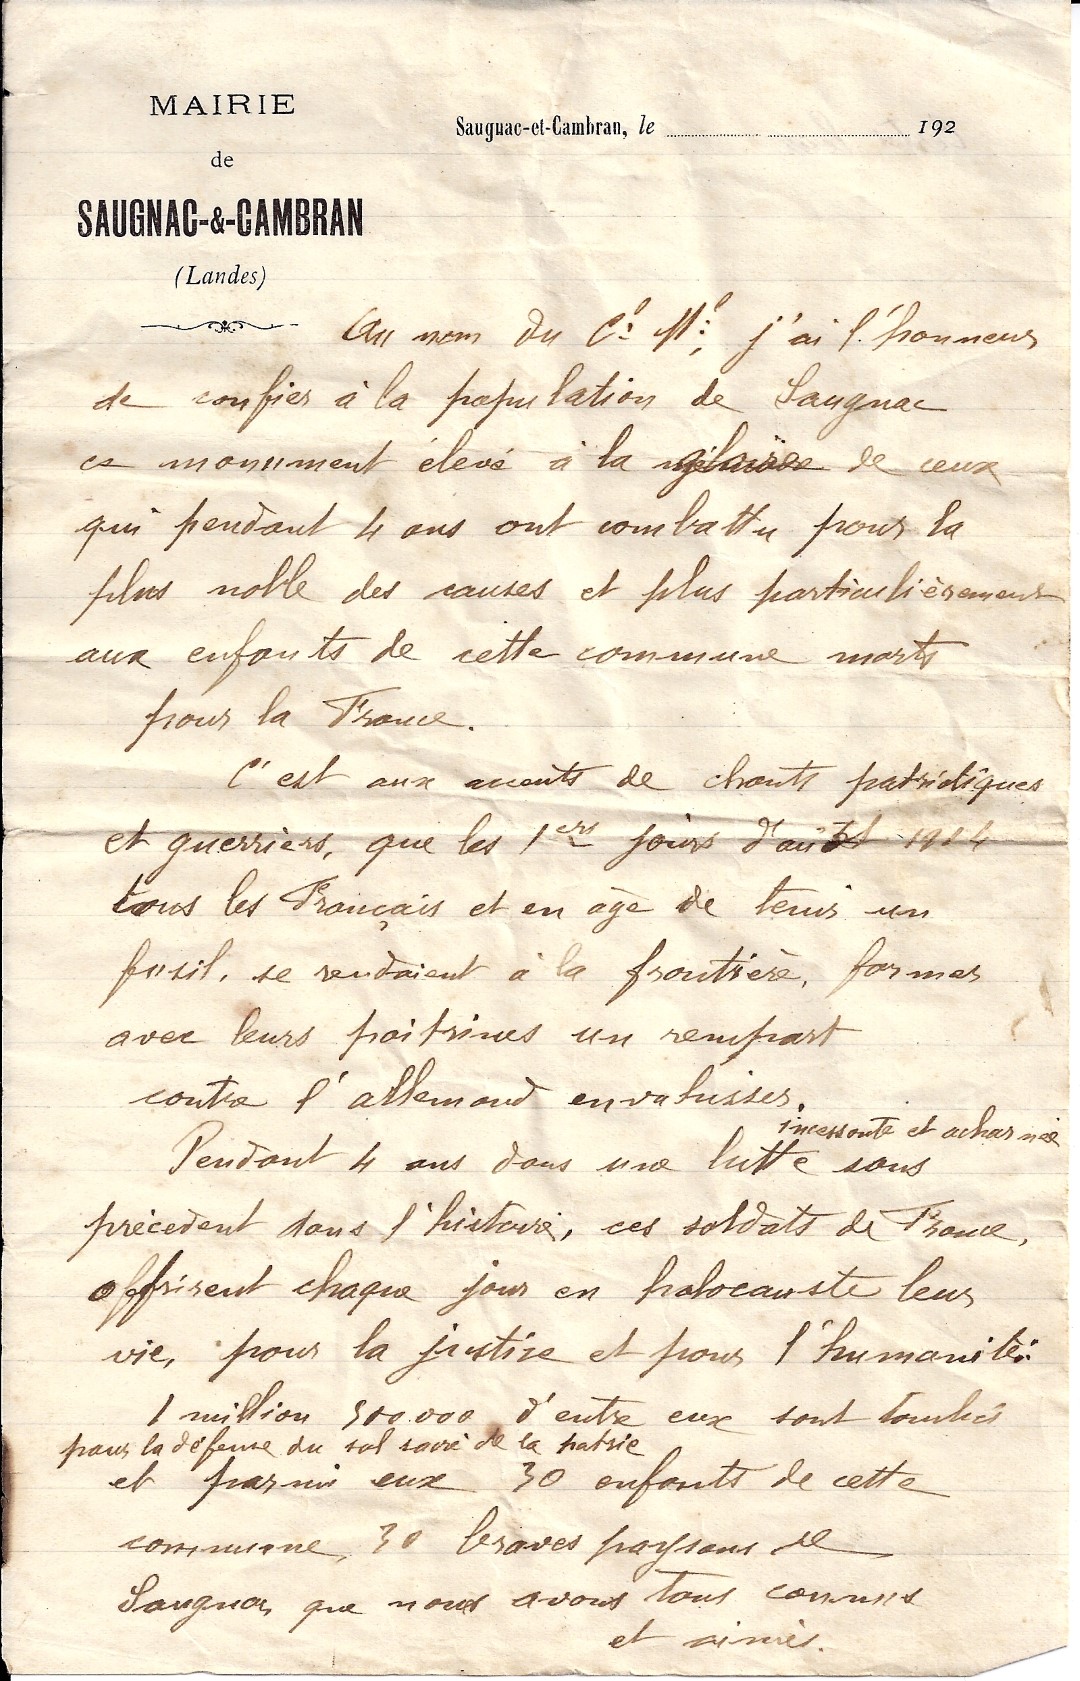 MAIRIE
de
SAUGNAC-&-CAMBRAN
(Landes)
Saugnac-et-Cambran, le 192
Au nom du Cl. Ml., j'ai l'honneur
de confier à la population de Saugnac
ce monument élevé à la gloire de ceux
qui pendant 4 ans ont combattu pour la
plus noble des causes et plus particulièrement
aux enfants de cette commune morts
pour la France.
C'est aux accents de chants patriotiques
et guerriers, que les 1ers jours d'août 1914
tous les Français et en âge de tenir un
fusil, se rendaient à la frontière, former
avec leurs poitrines un rempart
contre l'allemand envahisser.
incessante et acharnée
Pendant 4 ans dans une lutte sans
précédent dans l'histoire, ces soldats de France,
offrirent chaque jour en holocauste leur
vie, pour la justice et pour l'humanité.
1 million 500.000 d'entre eux sont tombés
pour la défense du sol sacré de la patrie
et parmi eux 30 enfants de cette
commune, 30 braves paysans de
Saugnac que nous avons tous connus
et aimés.